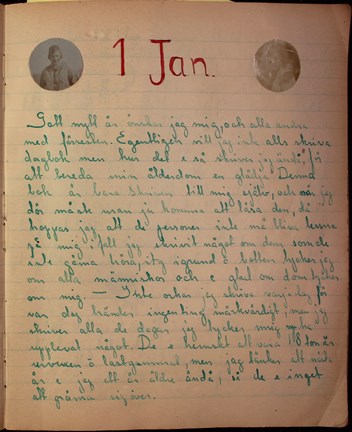 1 Jan.
Gott nytt år önskar jag mig, och alla andra
med förresten. Egentligen vill jag inte alls skriva
dagbok men hur det e så skriver jag ändå, för
att bereda min ålderdom en glädje. Denna
bok är bara skriven till mig själv, och när jag
dör måste man ju komma att läsa den, då
hoppas jag att de personer inte må bliva ledsna
på mig ifall jag skrivit något om dem som de
inte gärna höra, ity igrund o botten tycker jag
om alla människor och e glad om dom tycker
om mig. — Inte orkar jag skriva varje dag, för
var dag händer ingenting märkvärdigt, men jag
skriver alla de dagar jag tycker mig ha
upplevat något. De e hemskt att vara 18 ton år
men jag tänker att nästa
år e jag ett år äldre ändå, så de e inget
att gräma sig över.